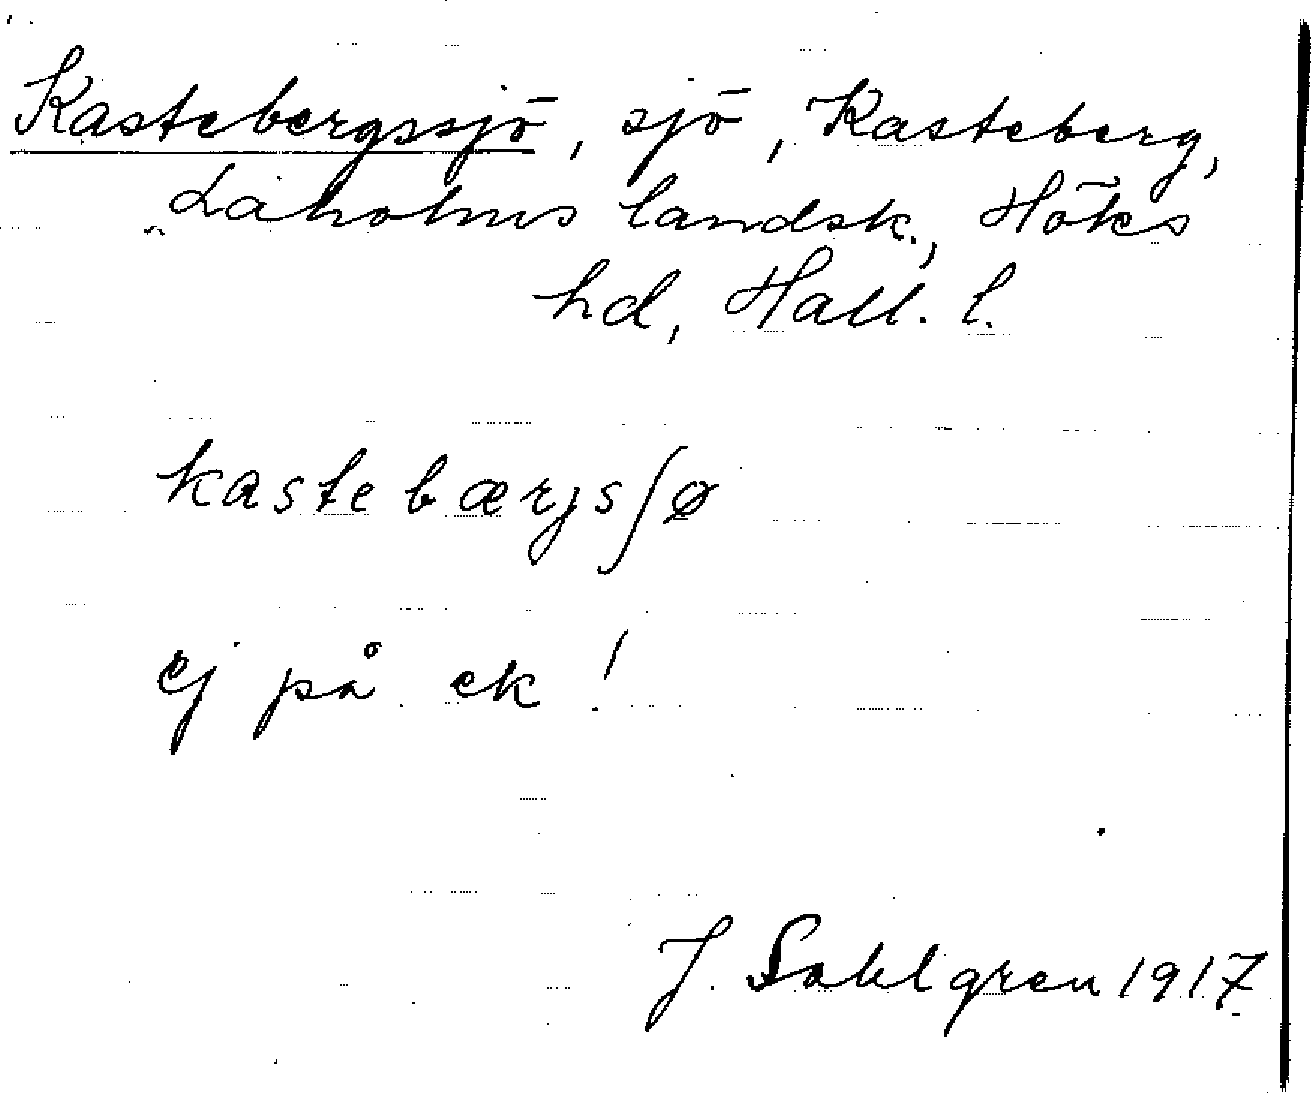 Kastebergssjö, sjö, Kasteberg,
Laholms landsk., Höks
hd, Hall. l.
kastebærjsʃø
ej på ek!
J. Sahlgren 1917